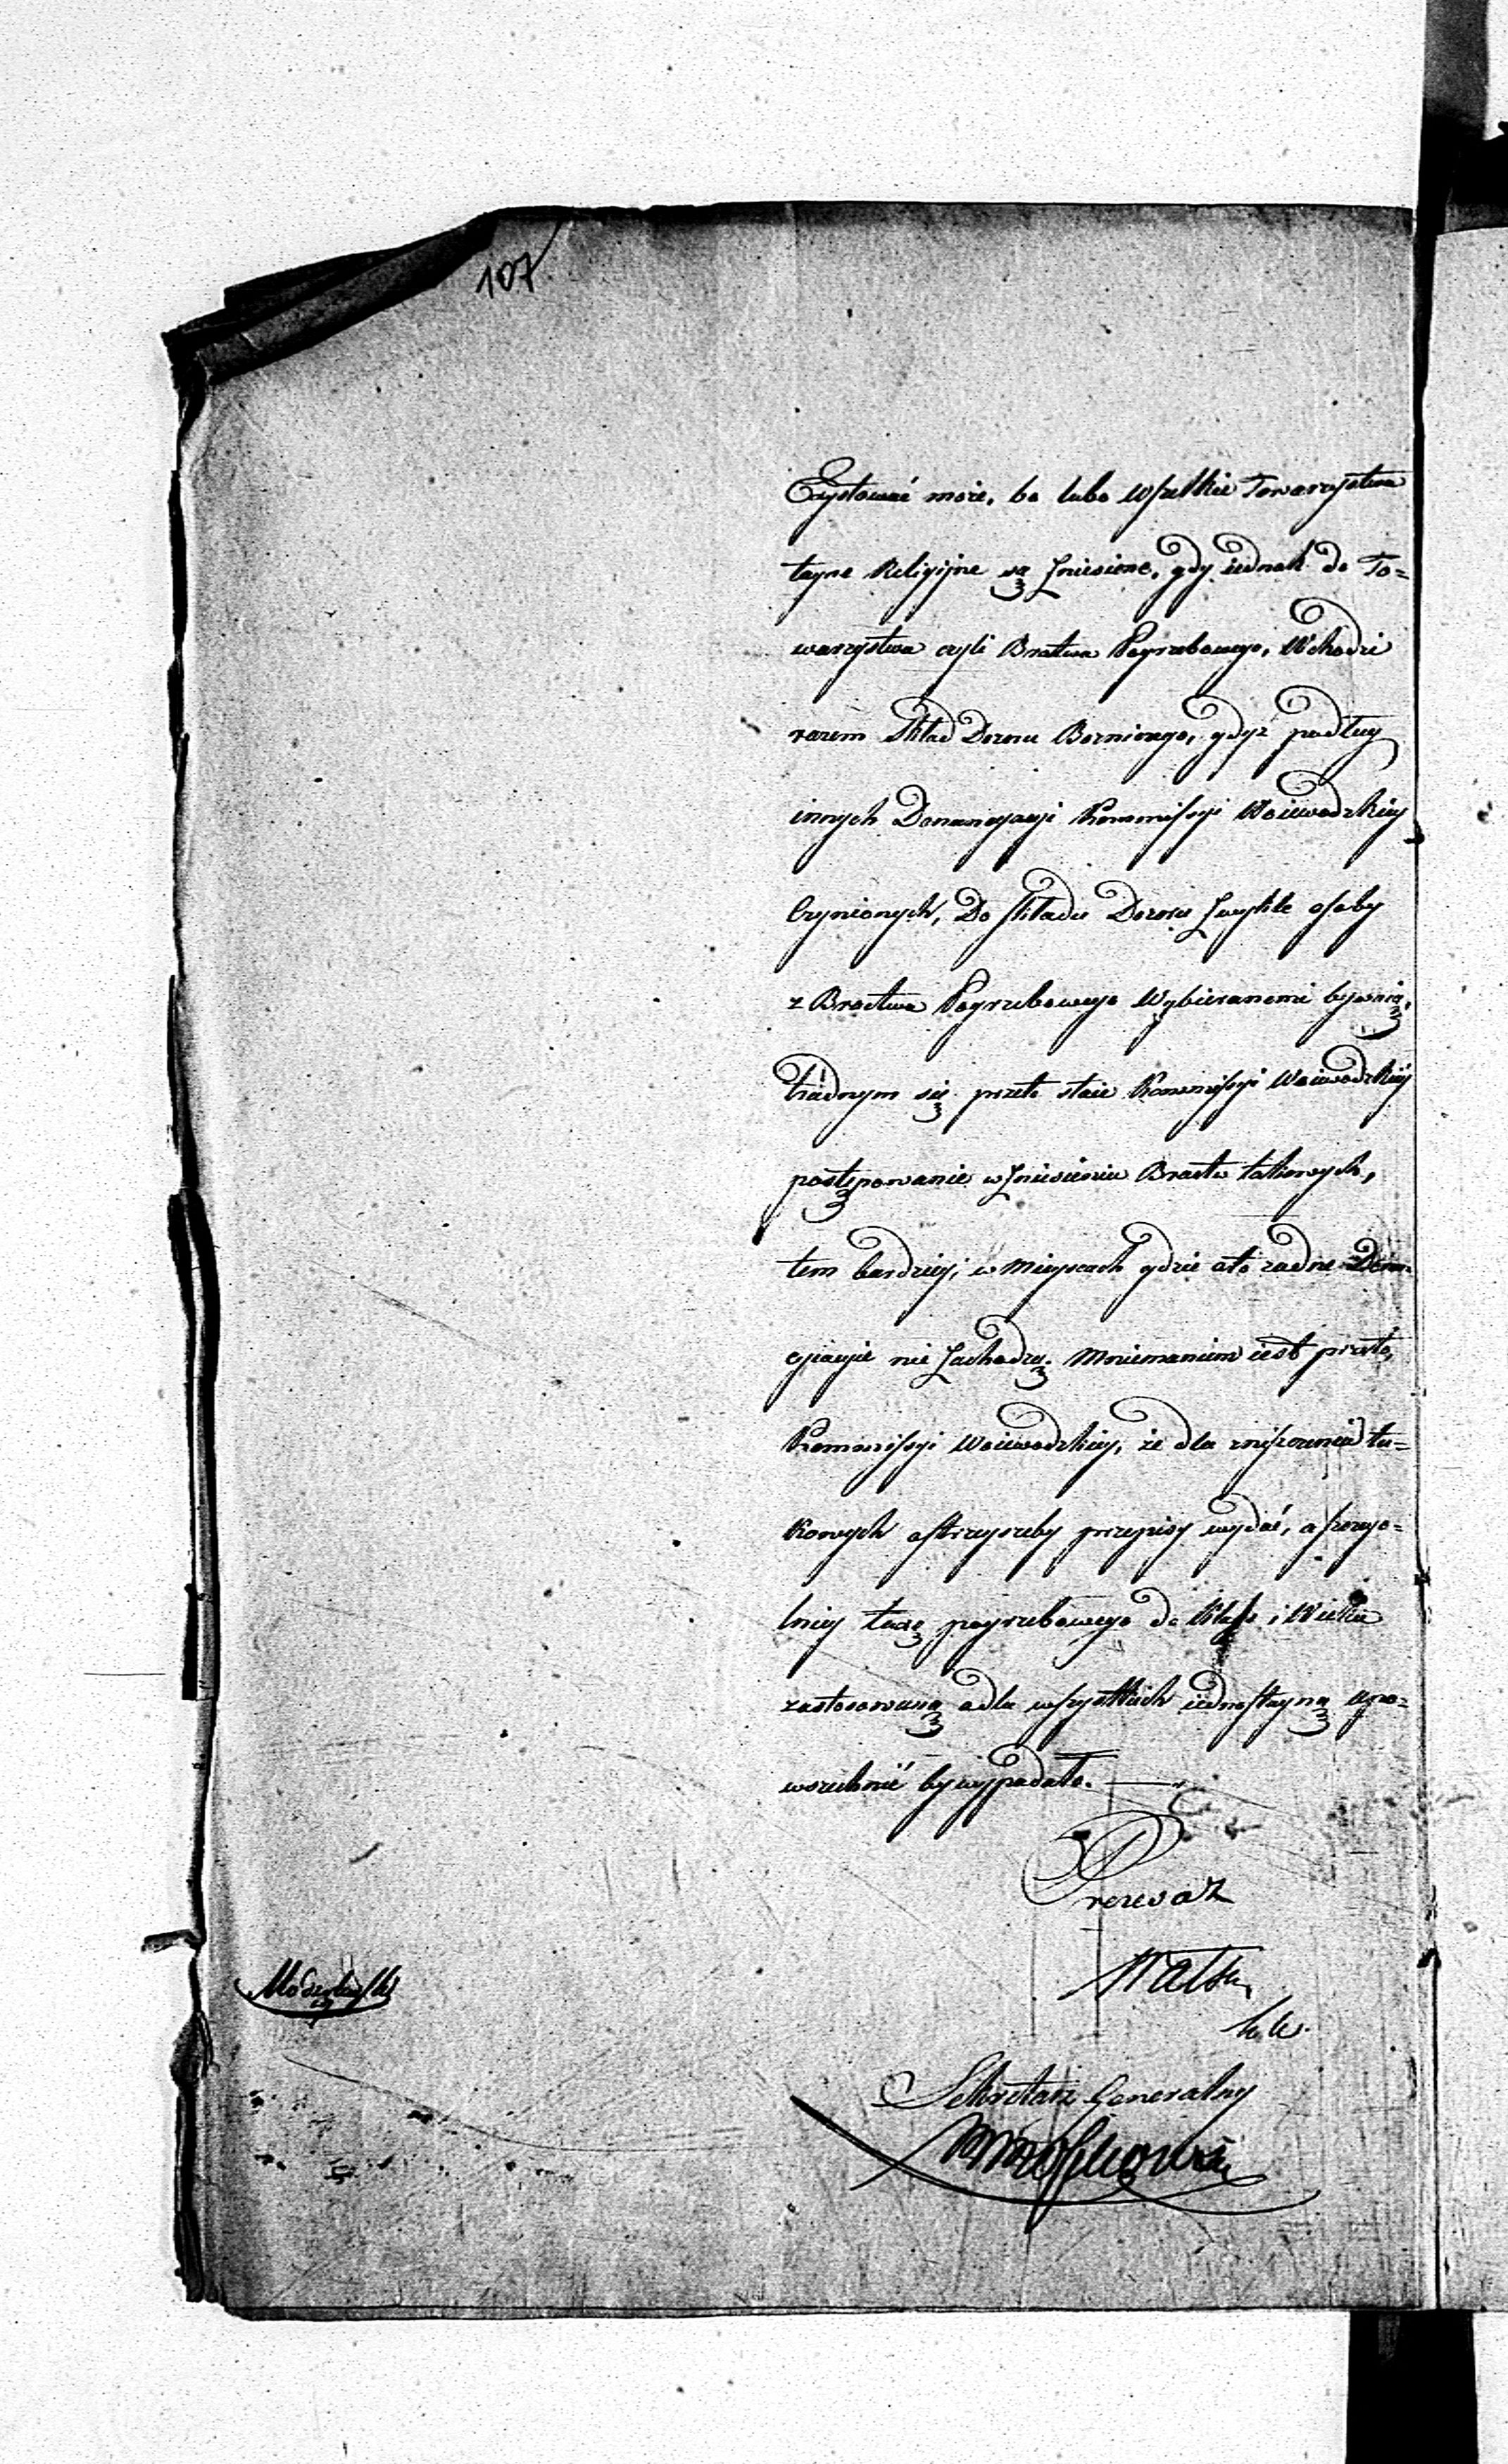 107
Exystować może, bo lubo wszelkie Towarzystwa
tayne Religijne są zniesione, gdy iednak do To=
warzystwa czyli Bractwa Pogrzebowego, Wchodzi
razem Skład Dozoru Boznicznego, gdyż podług
innych Denuncyacyi Kommissyi Woiewodzkiey
Czynionych, Do składu Dozoru zwykle osoby
z Bractwa Pogrzebowego Wybieranemi bywaią,
trudnym się przeto staie Kommissyi Woiewodzkiey
postępowanie w zniesieniu Bractw takowych,
tem bardziey, w Mieyscach gdzie ato żadne Denun=
cyacyie nie zachodzą. Mniemaniem iest przeto,
Kommissyi Woiewodzkiey, że dla zniszczenia ta=
kowych ostrzeyszeby przepisy wydać, a szczegó=
lniey taxę pogrzebowego do Klass i Wieku
zastosowaną a dla wszystkich iednostayną upo=
wszechnić by wypadało.
Prezes
Sekretarz Generalny